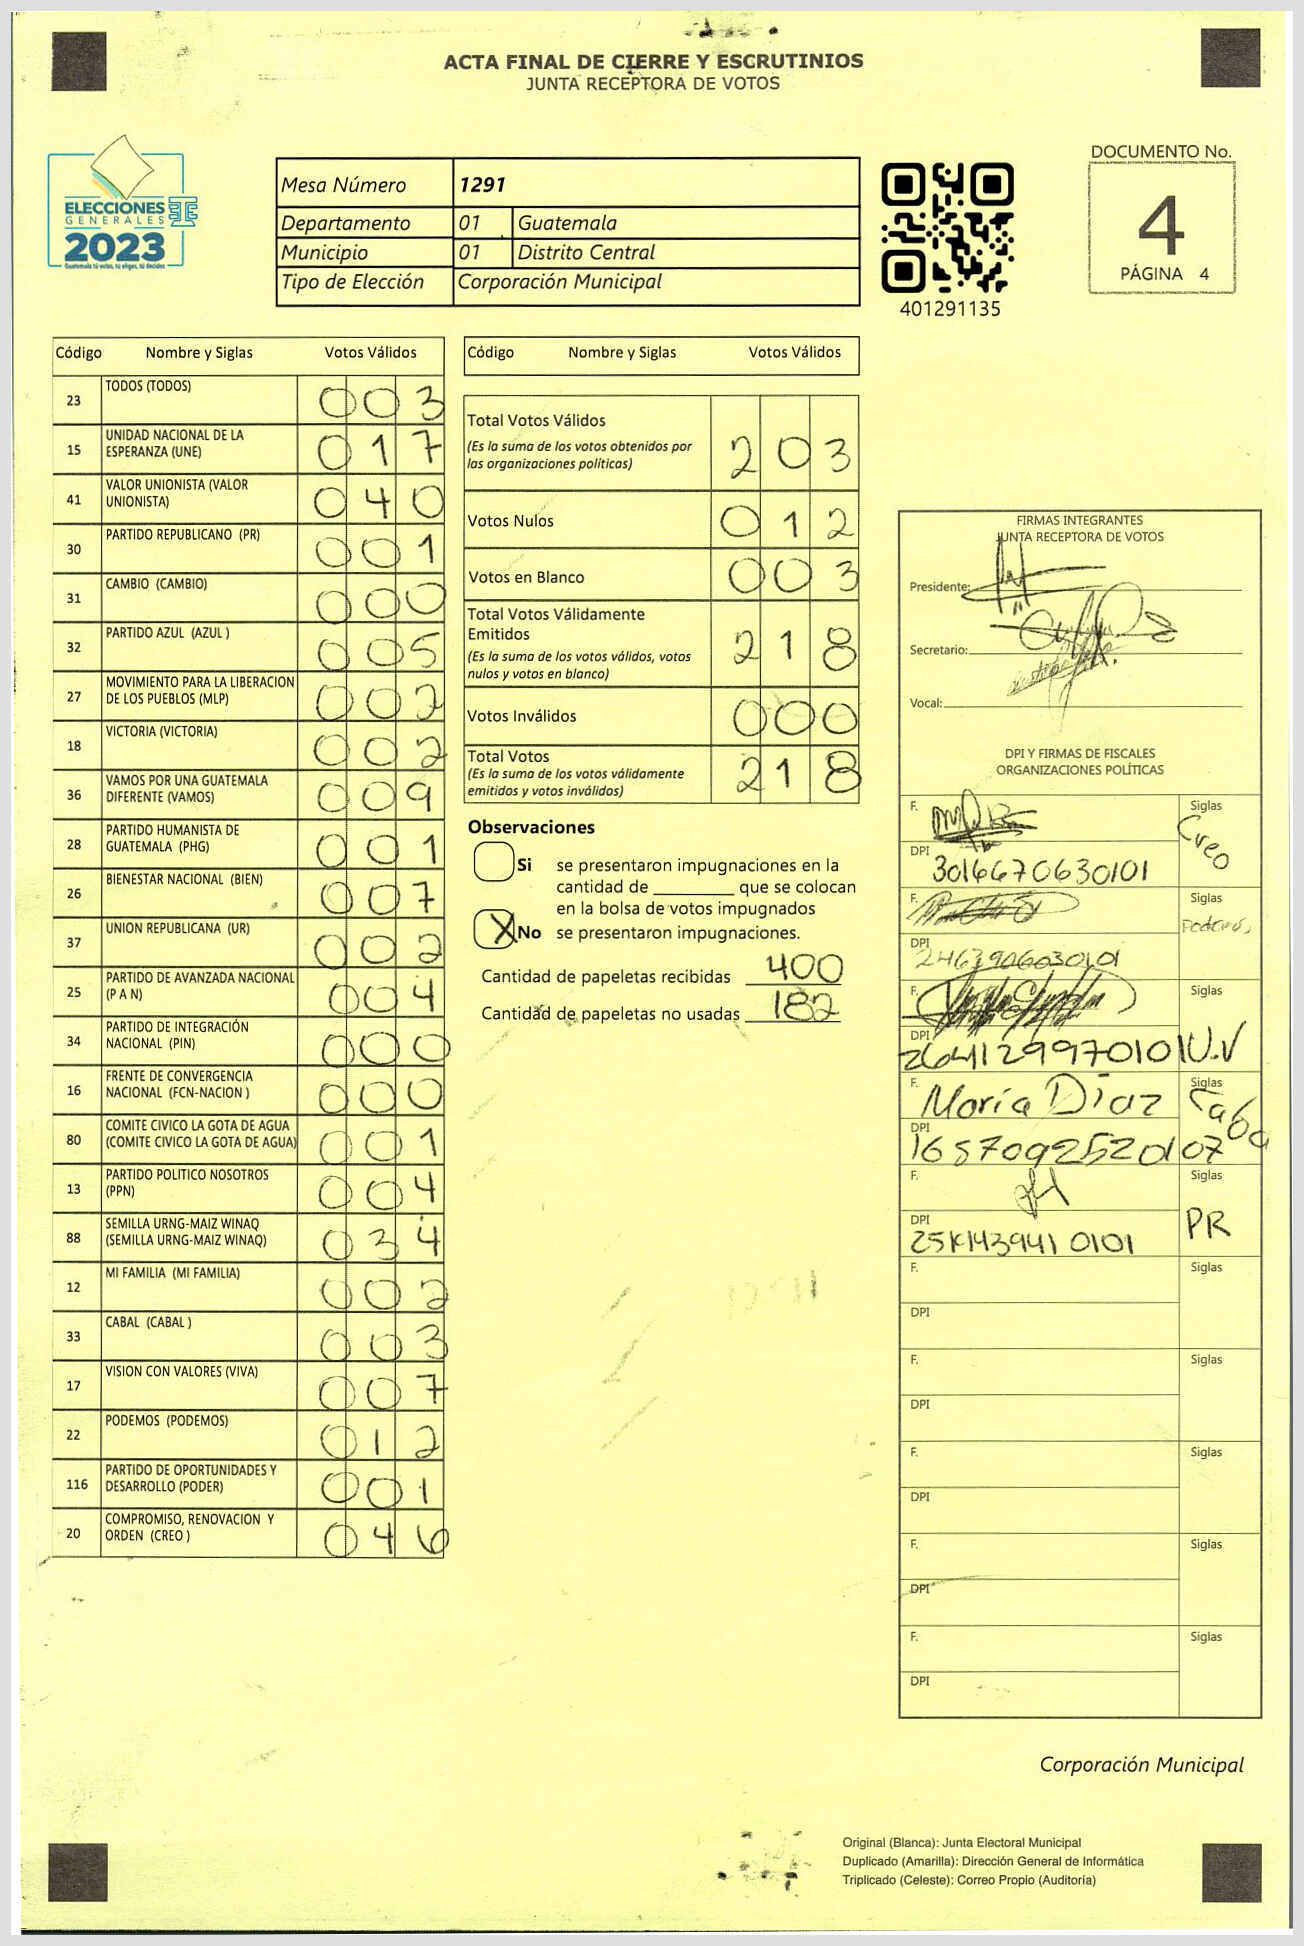 ACTA FINAL DE CIERRE Y ESCRUTINIOS
JUNTA RECEPTORA DE VOTOS
ELECCIONES
GENERALES
2023
Guatemala tú votas, tú eliges, tú decides
Mesa Número 1291
Departamento 01 Guatemala
Municipio 01 Distrito Central
Tipo de Elección Corporación Municipal
401291135
DOCUMENTO No.
4
PÁGINA 4
Código Nombre y Siglas Votos Válidos
23 TODOS (TODOS) 003
15 UNIDAD NACIONAL DE LA
ESPERANZA (UNE) 017
41 VALOR UNIONISTA (VALOR
UNIONISTA) 040
30 PARTIDO REPUBLICANO (PR) 001
31 CAMBIO (CAMBIO) 000
32 PARTIDO AZUL (AZUL ) 005
27 MOVIMIENTO PARA LA LIBERACION
DE LOS PUEBLOS (MLP) 002
18 VICTORIA (VICTORIA) 002
36 VAMOS POR UNA GUATEMALA
DIFERENTE (VAMOS) 009
28 PARTIDO HUMANISTA DE
GUATEMALA (PHG) 001
26 BIENESTAR NACIONAL (BIEN) 007
37 UNION REPUBLICANA (UR) 002
25 PARTIDO DE AVANZADA NACIONAL
(P A N) 004
34 PARTIDO DE INTEGRACIÓN
NACIONAL (PIN) 000
16 FRENTE DE CONVERGENCIA
NACIONAL (FCN-NACION ) 000
80 COMITE CIVICO LA GOTA DE AGUA
(COMITE CIVICO LA GOTA DE AGUA) 001
13 PARTIDO POLITICO NOSOTROS
(PPN) 004
88 SEMILLA URNG-MAIZ WINAQ
(SEMILLA URNG-MAIZ WINAQ) 034
12 MI FAMILIA (MI FAMILIA) 002
33 CABAL (CABAL ) 003
17 VISION CON VALORES (VIVA) 007
22 PODEMOS (PODEMOS) 012
116 PARTIDO DE OPORTUNIDADES Y
DESARROLLO (PODER) 001
20 COMPROMISO, RENOVACION Y
ORDEN (CREO ) 046
Código Nombre y Siglas Votos Válidos
Total Votos Válidos 203
(Es la suma de los votos obtenidos por
las organizaciones políticas)
Votos Nulos 012
Votos en Blanco 003
Total Votos Válidamente
Emitidos 218
(Es la suma de los votos válidos, votos
nulos y votos en blanco)
Votos Inválidos 000
Total Votos 218
(Es la suma de los votos válidamente
emitidos y votos inválidos)
Observaciones
Si se presentaron impugnaciones en la
cantidad de ________ que se colocan
en la bolsa de votos impugnados
X No se presentaron impugnaciones.
Cantidad de papeletas recibidas 400
Cantidad de papeletas no usadas 182
FIRMAS INTEGRANTES
JUNTA RECEPTORA DE VOTOS
Presidente:
Secretario:
Vocal:
DPI Y FIRMAS DE FISCALES
ORGANIZACIONES POLÍTICAS
F. Siglas
Creo
DPI
3016670630101
F. Siglas
Podemos
DPI
F. Siglas
DPI
2641299970101 U.V
F. María Díaz Siglas
DPI
1657092520107
F. Siglas
PR
DPI
F. Siglas
DPI
F. Siglas
DPI
F. Siglas
DPI
F. Siglas
DPI
F. Siglas
DPI
Corporación Municipal
Original (Blanca): Junta Electoral Municipal
Duplicado (Amarilla): Dirección General de Informática
Triplicado (Celeste): Correo Propio (Auditoría)